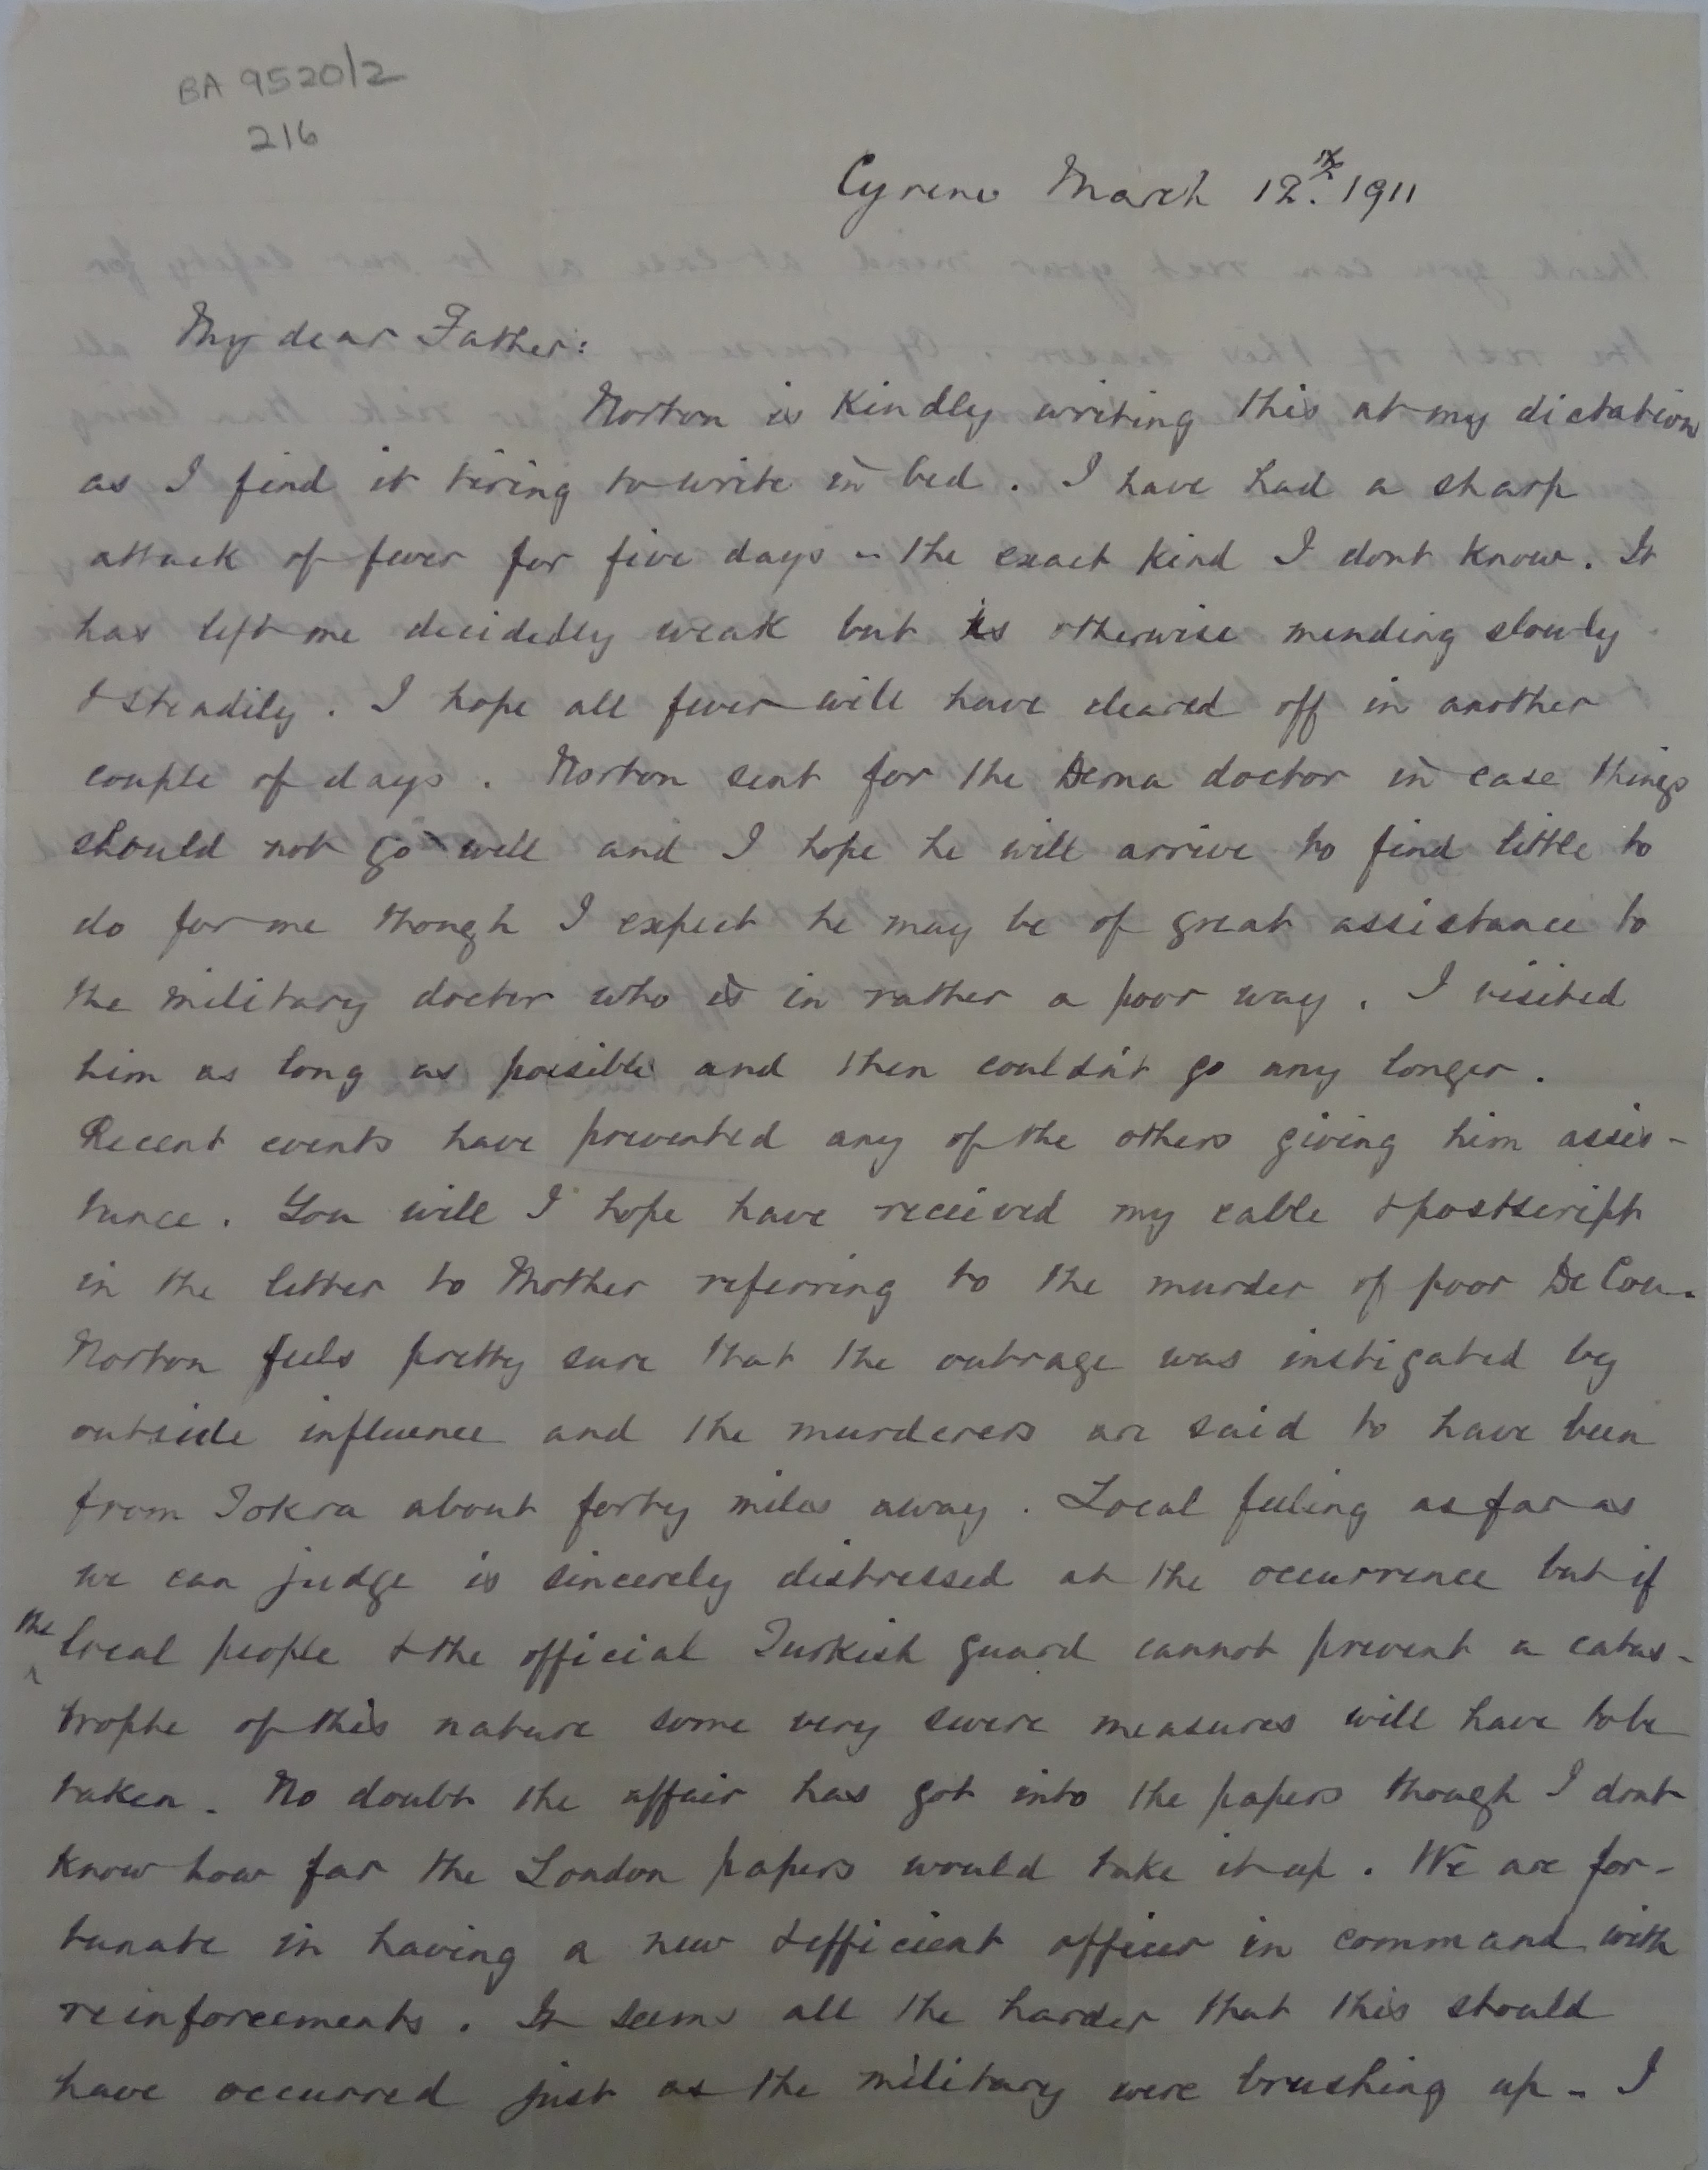 BA 9520/2
216
Cyrene March 12th. 1911
My dear Father:
Norton is kindly writing this at my dictation
as I find it tiring to write in bed. I have had a sharp
attack of fever for five days - the exact kind I dont know. It
has left me decidedly weak but is otherwise mending slowly
& steadily. I hope all fever will have cleared off in another
couple of days. Norton sent for the Derna doctor in case things
should not go well and I hope he will arrive to find little to
do for me though I expect he may be of great assistance to
the military doctor who is in rather a poor way. I visited
him as long as possible and then couldn't go any longer.
Recent events have prevented any of the others giving him assis-
tance. You will I hope have received my cable & postscript
in the letter to Mother referring to the murder of poor De Cou.
Norton feels pretty sure that the outrage was instigated by
outside influence and the murderers are said to have been
from Tokra about forty miles away. Local feeling as far as
we can judge is sincerely distressed at the occurrence but if
the local people & the official Turkish guard cannot prevent a catas-
trophe of this nature some very severe measures will have to be
taken. No doubt the affair has got into the papers though I dont
know how far the London papers would take it up. We are for-
tunate in having a new & efficient officer in command with
reinforcements. It seems all the harder that this should
have occurred just as the military were brushing up - I